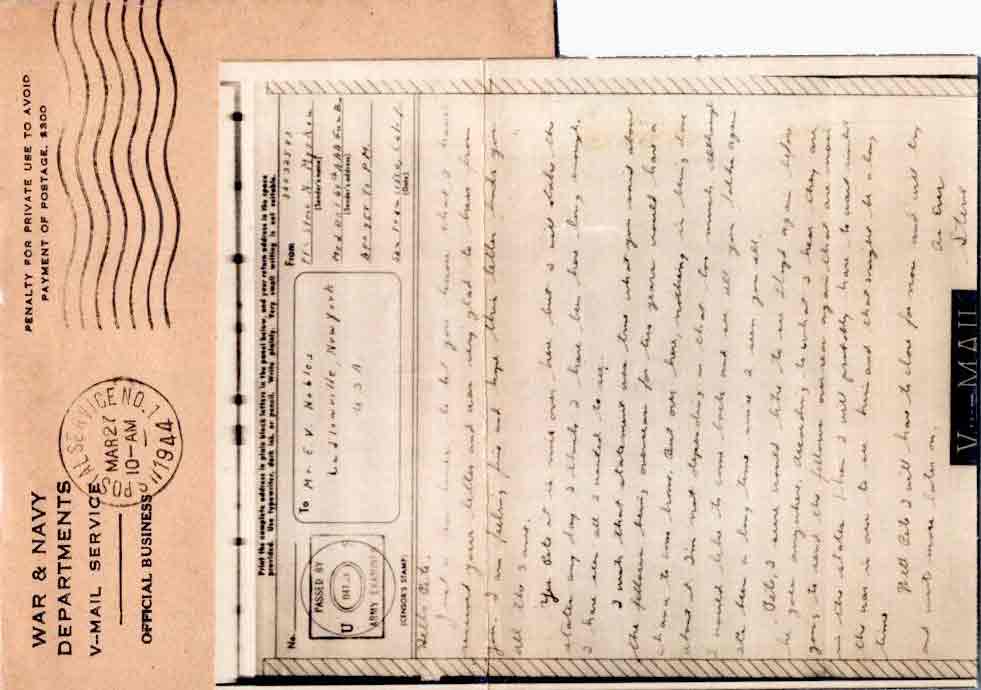 PENALTY FOR PRIVATE USE TO AVOID
PAYMENT OF POSTAGE, $300
WAR & NAVY
DEPARTMENTS
V-MAIL SERVICE
OFFICIAL BUSINESS
POSTAL SERVICE NO. 1
MAR 27
10-AM
1944
Print the complete address in plain block letters in the panel below, and your return address in the space
provided. Use typewriter, dark ink, or pencil. Write plainly. Very small writing is not suitable.
No.
PASSED BY
U
ARMY EXAMINER
(CENSOR'S STAMP)
To Mr. E. V. Nobles
Ludlowville, New York
USA
From
(Sender's name)
(Sender's address)
(Date)
Hello Pete.
Just a line to let you know that I have
received your letter and was very glad to hear from
you. I am feeling fine and hope this letter finds you
all the same.
Yes Pete it is nice over here but I will take the
states any day I think I have been here long enough.
I have seen all I want to see.
I wish that statement was true what you said about
the fellows being overseas for two years would have a
chance to come home. But over here, nothing is being done
about it I'm not depending on that too much, although
I would like to come back and see all you folks again
It's been a long time since I seen you all.
Pete, I sure would like to see Floyd again before
he goes anywhere. According to what I hear they are
going to send the fellows overseas again that are now
in the states. Then I will probably have to wait until
the war is over to see him and that might be a long
time
Well Pete I will have to close for now and will try
and write more later on.
As Ever
Steve
V-MAIL